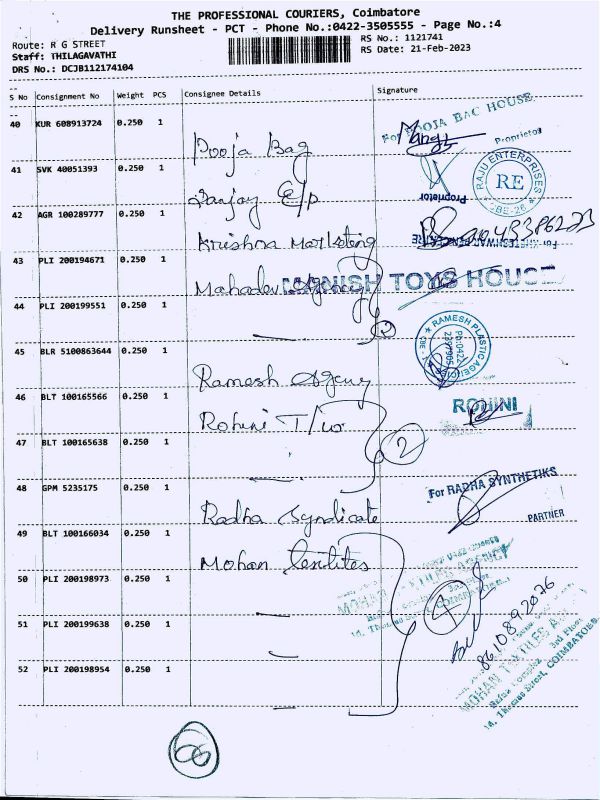 THE PROFESSIONAL COURIERS, Coimbatore
Delivery Runsheet - PCT - Phone No.:0422-3505555 - Page No.:4
Route: R G STREET
RS No.: 1121741
Staff: THILAGAVATHI
RS Date: 21-Feb-2023
DRS No.: DCJB112174104
S No Consignment No Weight PCS Consignee Details Signature
40 KUR 608913724 0.250 1 Pooja Bag
POOJA BAG HOUSE
Proprietor
41 SVK 40051393 0.250 1 Sanjay E/p
Proprietor
RAJU ENTERPRISES
RE
CBE-26
42 AGR 100289777 0.250 1 Krishna Marketing
43 PLI 200194671 0.250 1 Mahadev Agency
MANISH TOYS HOUSE
44 PLI 200199551 0.250 1
2
45 BLR 5100863644 0.250 1 Ramesh Agency
RAMESH PLASTIC AGENCY
46 BLT 100165566 0.250 1 Rohini T/
ROHINI
47 BLT 100165638 0.250 1
2
48 GPM 5235175 0.250 1 Radha Syndicate
For RADHA SYNTHETIKS
PARTNER
49 BLT 100166034 0.250 1 Mohan Textiles
MOHAN TEXTILES AGENCY
50 PLI 200198973 0.250 1
4
51 PLI 200199638 0.250 1
8610892076
52 PLI 200198954 0.250 1
MOHAN TEXTILES
3rd Floor
14, Thomas Street, COIMBATORE
66